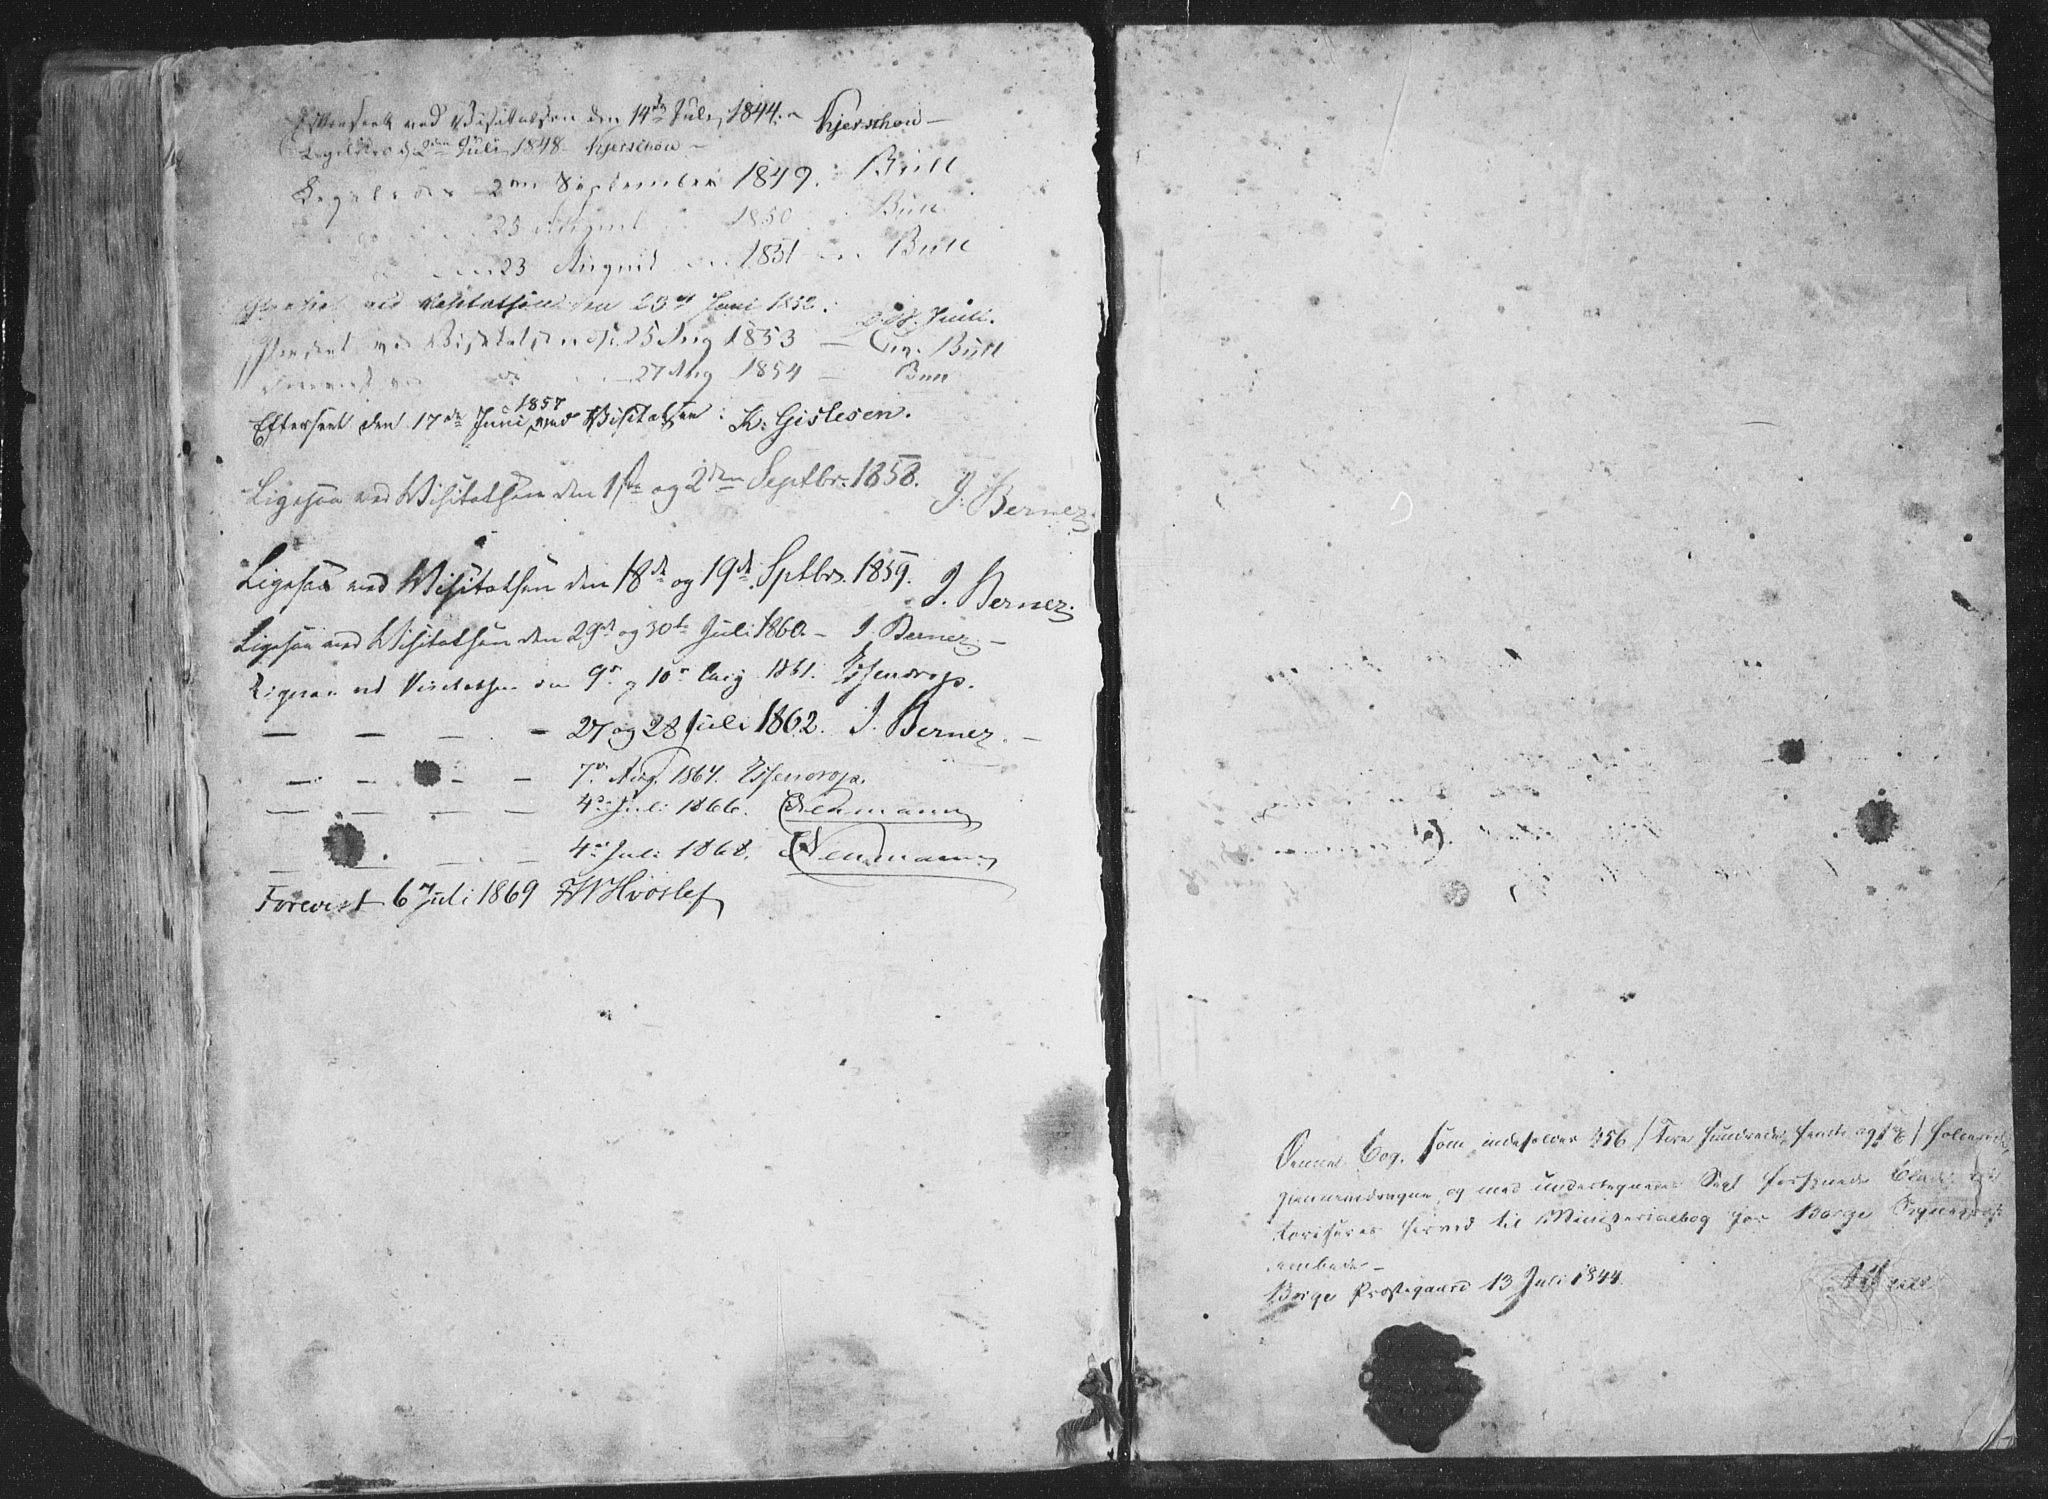 Efterseet ved Visitatsen den 14de Juli 1844. Kjerschow
Ligeledes d. 2den Juli 1848. Kjerschow
Ligeledes 2den September 1849. Bull
do 25 August 1850 Bull
do 23 August 1851 Bull
ved Visitatsen den 23de Juni 1852.
ved Visitatsen d. 25 Aug 1853 Bull
do 27 Aug 1854 Bull
Efterseet den 17de Juni 1857 ved Visitatsen: K. Gislesen.
Ligesaa ved Visitatsen den 1ste og 2den Septbr. 1858. J. Berner.
Ligesaa ved Visitatsen den 18de og 19de Sptbr. 1859. J. Berner.
Ligesaa ved Visitatsen den 29de og 30te Juli 1860. – J. Berner. –
Ligesaa ved Visitatsen den 9de og 10de Aug 1861. Essendrop.
— — — — 27 og 28 Juli 1862. J. Berner. –
— — — — 7de Aug. 1864. Essendrop.
— — — — 4de Juli 1866. Neumann
— — — — 4de Juli 1868. Neumann
Forevist 6te Juli 1869 FWHvoslef
Denne Bog, som indeholder 456 /Fire Hundrede femti og sex/ Folier
gjennemdragne og med undertegnedes Segl forsynede Blade
toriseres herved til Ministerialbog for Borge Sognepræste
embede –
Borge Præstegaard 13 Juli 1844.